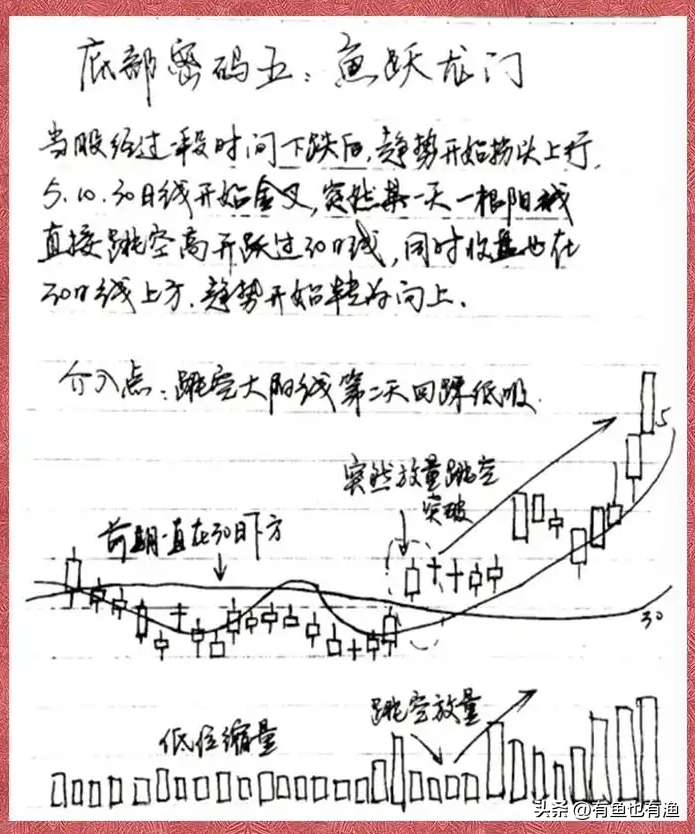 底部密码五：鱼跃龙门
当股经过一段时间下跌后，趋势开始拐头上行，
5.10.30日线开始金叉，突然某一天一根阳线
直接跳空高开跃过30日线，同时收盘也在
30日线上方，趋势开始转为向上。
介入点：跳空大阳线第二天回踩低吸.
突然放量跳空
突破
前期一直在30日下方
5
30
跳空放量
低位缩量
头条 @有鱼也有渔